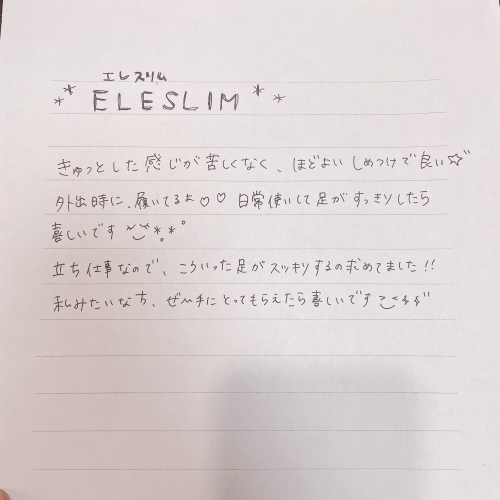 エレスリム
** ELESLIM **
きゅっとした感じが苦しくなく、ほどよいしめつけで良い☆
外出時に、履いてるよ♡♡ 日常使いして足がすっきりしたら
喜しいです
立ち仕事なので、こういった足がスッキリするの求めてました!!
私みたいな方、ぜひ手にとってもらえたら喜しいです